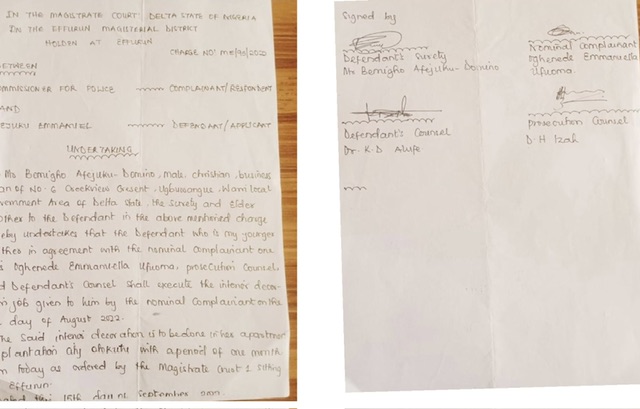 IN THE MAGISTRATE COURT DELTA STATE OF NIGERIA
IN THE EFFURUN MAGISTERIAL DISTRICT
HOLDEN AT EFFURUN
CHARGE NO:
ETWEEN
MMISSIONER FOR POLICE COMPLAINANT/RESPONDENT
AND
EJUKU EMMANUEL DEFENDANT/APPLICANT
UNDERTAKING
Mr Bemigho Afejuku-Domino, male, christian, business
an of NO. 6 Creekview Cresent, Ugbuwangue, Warri local
vernment Area of Delta state, the surety and elder
other to the Defendant in the above mentioned charge
eby undertakes that the Defendant who is my younger
ther in agreement with the nominal complainant one
s Oghenede Emmanuella Ufuoma, prosecution Counsel,
d Defendant's Counsel shall execute the interior decor-
n job given to him by the nominal Complainant on the
day of August 2022.
The said interior decoration is to be done in her apartmen
plantation city otokutu with a period of one month
m today as ordered by the Magistrate Court 1 sitting
Effurun.
ated this 15th day of September 2022.
Signed by
Defendant's Surety
Mr Bemigho Afejuku-Domino
Nominal Complainant
Oghenede Emmanuella
Ufuoma.
Defendant's Counsel
Dr. K.D Alufe
prosecution Counsel
D. H Izah